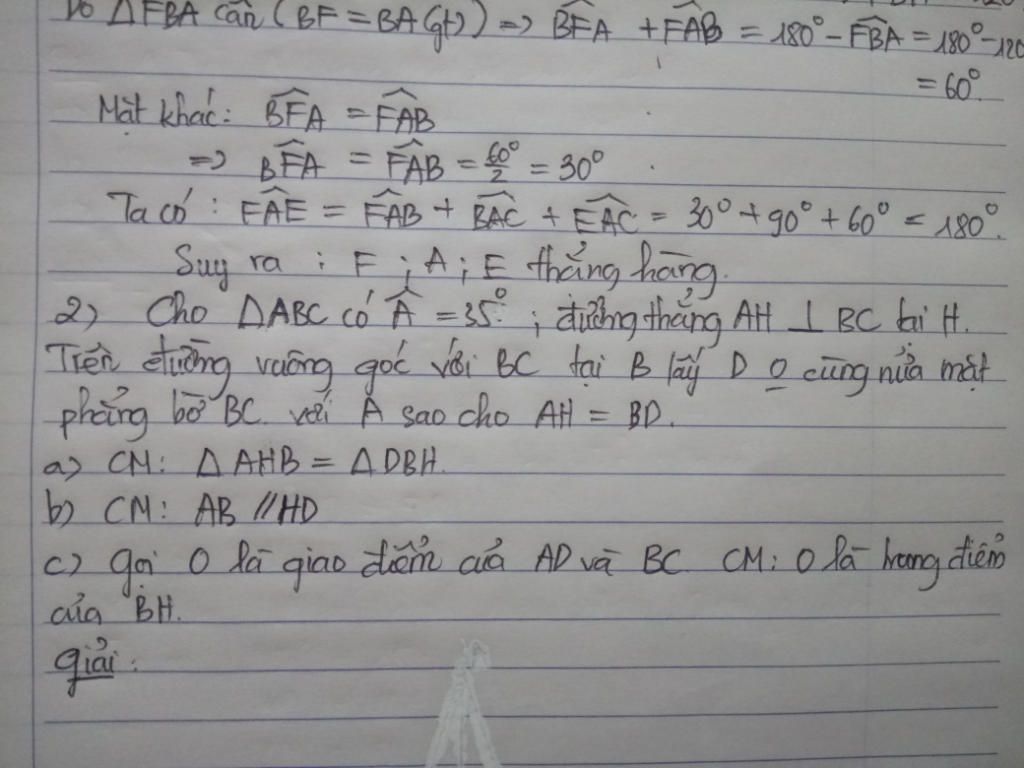 Do ΔFBA cân (BF = BA (gt)) => BFA + FAB = 180° - FBA = 180° - 120
= 60°.
Mặt khác: BFA = FAB
=> BFA = FAB = 60°/2 = 30°
Ta có: FAE = FAB + BAC + EAC = 30° + 90° + 60° = 180°.
Suy ra : F ; A ; E thẳng hàng.
2) Cho ΔABC có Â = 35° ; đường thẳng AH ⊥ BC tại H.
Trên đường vuông góc với BC tại B lấy D o cùng nửa mặt
phẳng bờ BC với A sao cho AH = BD.
a) CM: ΔAHB = ΔDBH.
b) CM: AB // HD
c) Gọi O là giao điểm của AD và BC. CM: O là trung điểm
của BH.
Giải: